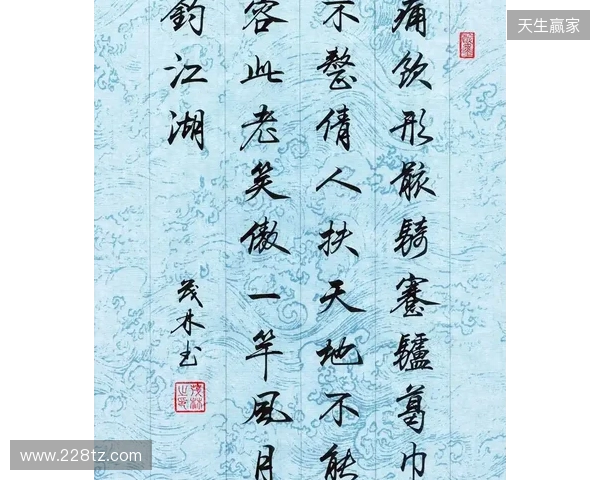 痛飲形骸騎蹇驢葛巾
不整倩人扶天地不能
容此老笑傲一竿風月
釣江湖
茂林书
天生赢家
www.228tz.com